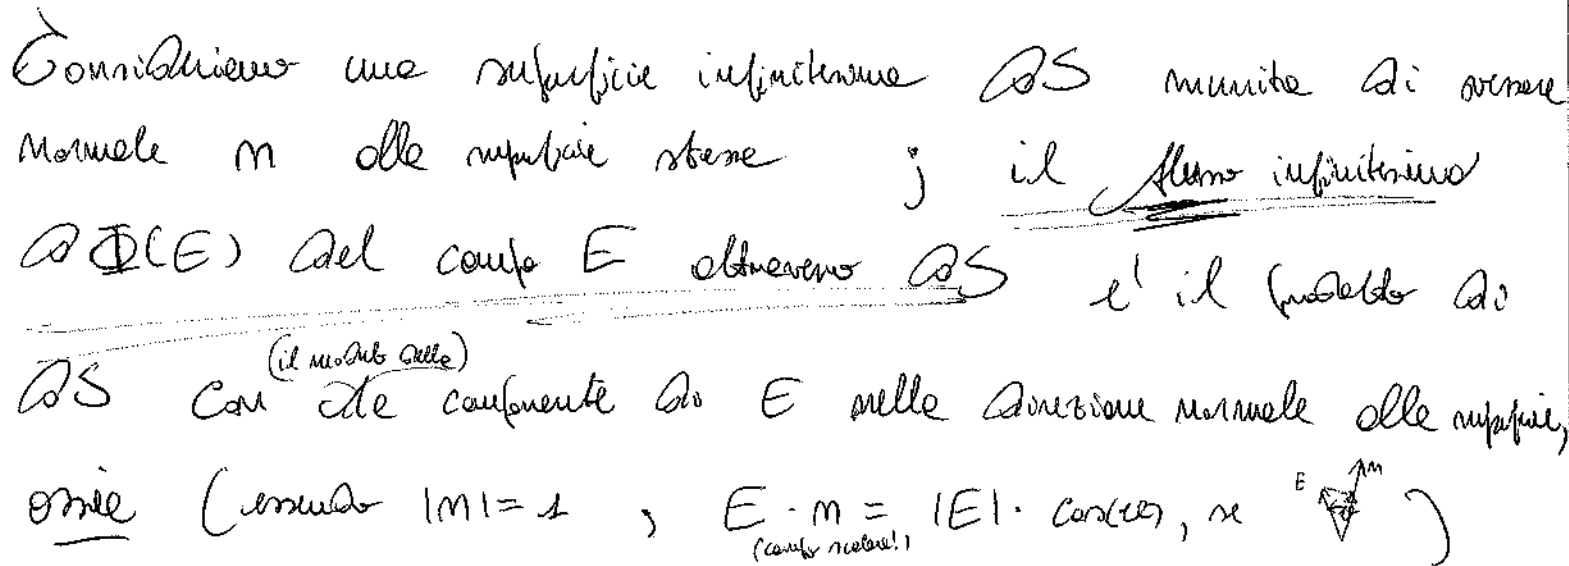 Consideriamo una superficie infinitesima dS munita di versore
normale n alla superficie stessa ; il flusso infinitesimo
dΦ(E) del campo E attraverso dS e' il prodotto di
(il modulo della)
dS con la componente di E nella direzione normale alla superficie,
ossia (essendo |n|=1 , E · n = |E| · cos(α), se E n )
(campo scalare!)